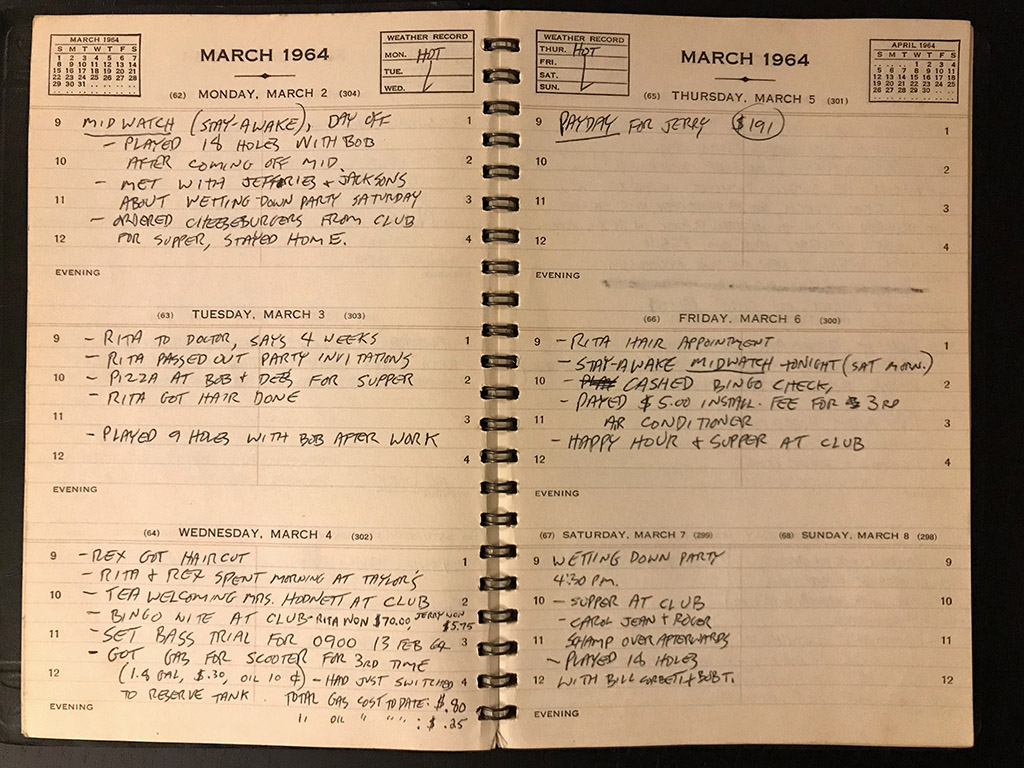 MARCH 1964
S M T W T F S
1 2 3 4 5 6 7
8 9 10 11 12 13 14
15 16 17 18 19 20 21
22 23 24 25 26 27 28
29 30 31
MARCH 1964
WEATHER RECORD
MON. HOT
TUE.
WED.
(62) MONDAY, MARCH 2 (304)
9 MIDWATCH (STAY-AWAKE), DAY OFF 1
- PLAYED 18 HOLES WITH BOB
10 AFTER COMING OFF MID. 2
- MET WITH JEFFRIES + JACKSONS
11 ABOUT WETTING DOWN PARTY SATURDAY 3
- ORDERED CHEESEBURGERS FROM CLUB
12 FOR SUPPER, STAYED HOME. 4
EVENING
(63) TUESDAY, MARCH 3 (303)
9 - RITA TO DOCTOR, SAYS 4 WEEKS 1
- RITA PASSED OUT PARTY INVITATIONS
10 - PIZZA AT BOB + DEBS FOR SUPPER 2
- RITA GOT HAIR DONE
11 3
- PLAYED 9 HOLES WITH BOB AFTER WORK
12 4
EVENING
(64) WEDNESDAY, MARCH 4 (302)
9 - REX GOT HAIRCUT 1
- RITA + REX SPENT MORNING AT TAYLOR'S
10 - TEA WELCOMING MRS. HODNETT AT CLUB 2
- BINGO NITE AT CLUB - RITA WON $70.00, JERRY WON $5.75
11 - SET BASS TRIAL FOR 0900 13 FEB 64 3
- GOT GAS FOR SCOOTER FOR 3RD TIME
12 (1.8 GAL, $.30, OIL 10 ¢) - HAD JUST SWITCHED 4
TO RESERVE TANK. TOTAL GAS COST TO DATE: $.80
EVENING
" OIL " " " : $ .25
WEATHER RECORD
THUR. HOT
FRI.
SAT.
SUN.
MARCH 1964
APRIL 1964
S M T W T F S
1 2 3 4
5 6 7 8 9 10 11
12 13 14 15 16 17 18
19 20 21 22 23 24 25
26 27 28 29 30
(65) THURSDAY, MARCH 5 (301)
9 PAYDAY FOR JERRY $191 1
10 2
11 3
12 4
EVENING
(66) FRIDAY, MARCH 6 (300)
9 - RITA HAIR APPOINTMENT 1
- STAY-AWAKE MIDWATCH TONIGHT (SAT MORN.)
10 - PLAY CASHED BINGO CHECK, 2
- PAYED $5.00 INSTALL. FEE FOR 3RD
11 AIR CONDITIONER 3
- HAPPY HOUR + SUPPER AT CLUB
12 4
EVENING
(67) SATURDAY, MARCH 7 (299)
9 WETTING DOWN PARTY
4:30 PM.
10 - SUPPER AT CLUB
- CAROL JEAN + ROGER
11 SCHAMP OVER AFTERWARDS
- PLAYED 18 HOLES
12 WITH BILL CORBETT + BOB T.
EVENING
(68) SUNDAY, MARCH 8 (298)
9
10
11
12